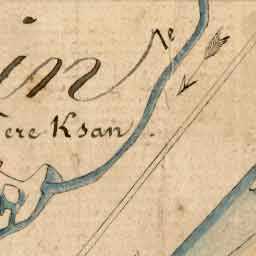 in
ne
ere Ksan